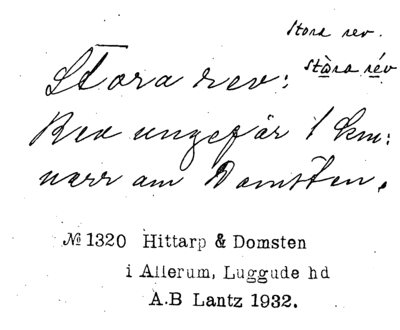 Stora rev.
stòra rév
Stora rev:
Rev ungefär 1 km:
norr om Domsten.
№ 1320 Hittarp & Domsten
i Allerum, Luggude hd
A.B Lantz 1932.